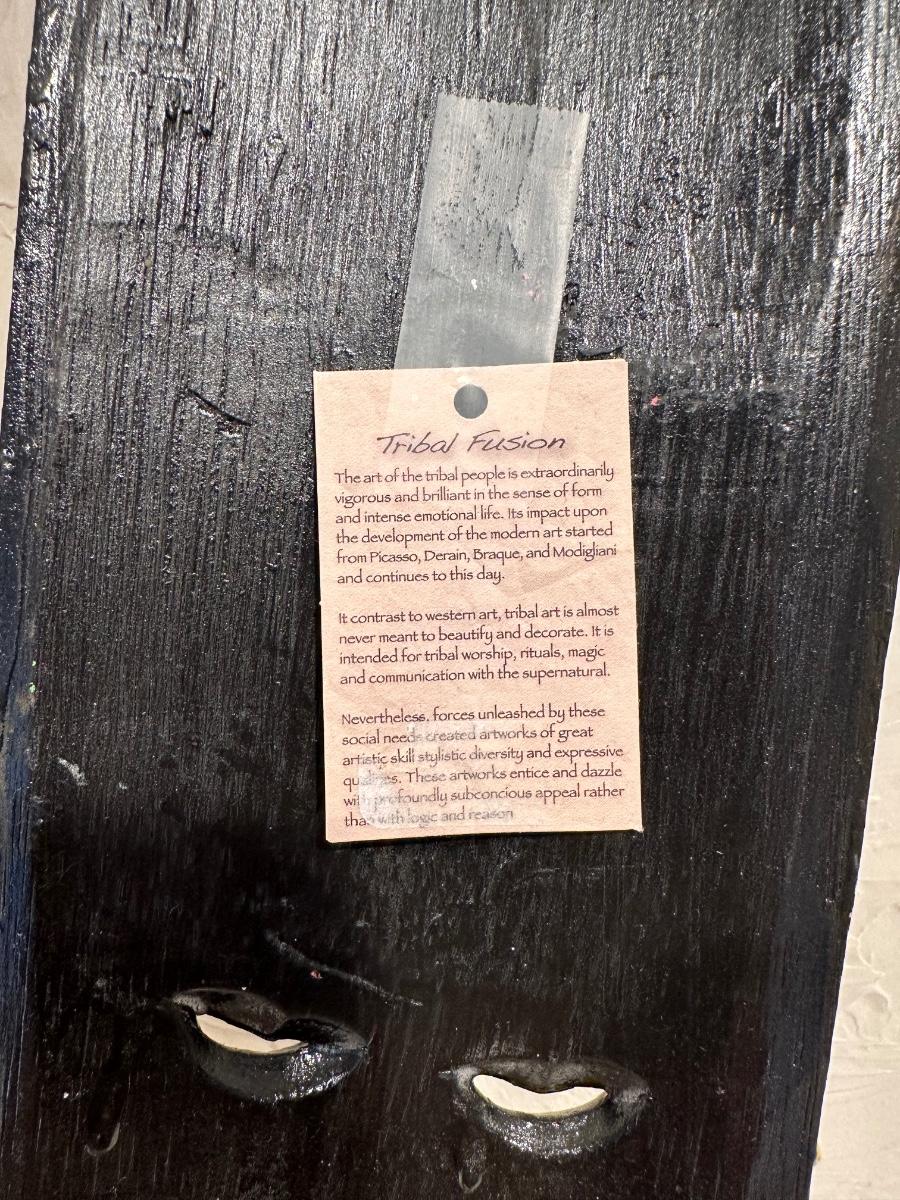 Tribal Fusion
The art of the tribal people is extraordinarily
vigorous and brilliant in the sense of form
and intense emotional life. Its impact upon
the development of the modern art started
from Picasso, Derain, Braque, and Modigliani
and continues to this day.
It contrast to western art, tribal art is almost
never meant to beautify and decorate. It is
intended for tribal worship, rituals, magic
and communication with the supernatural.
Nevertheless, forces unleashed by these
social needs created artworks of great
artistic skill stylistic diversity and expressive
qualities. These artworks entice and dazzle
with profoundly subconcious appeal rather
than with logic and reason